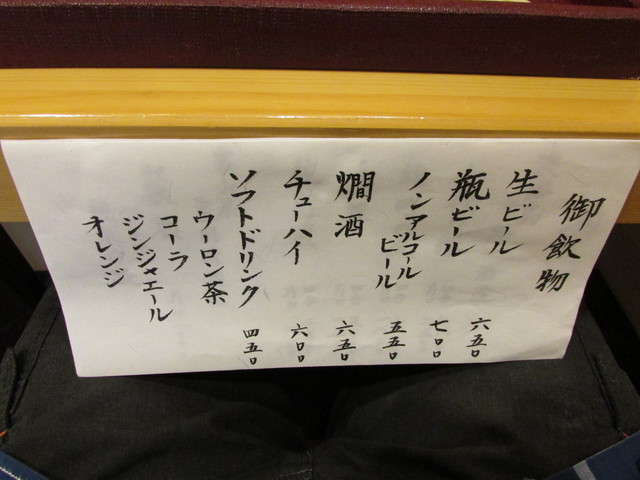 御飲物
生ビール 六五〇
瓶ビール 七〇〇
ノンアルコール
ビール 五五〇
燗酒 六五〇
チューハイ 六〇〇
ソフトドリンク 四五〇
ウーロン茶
コーラ
ジンジャエール
オレンジ